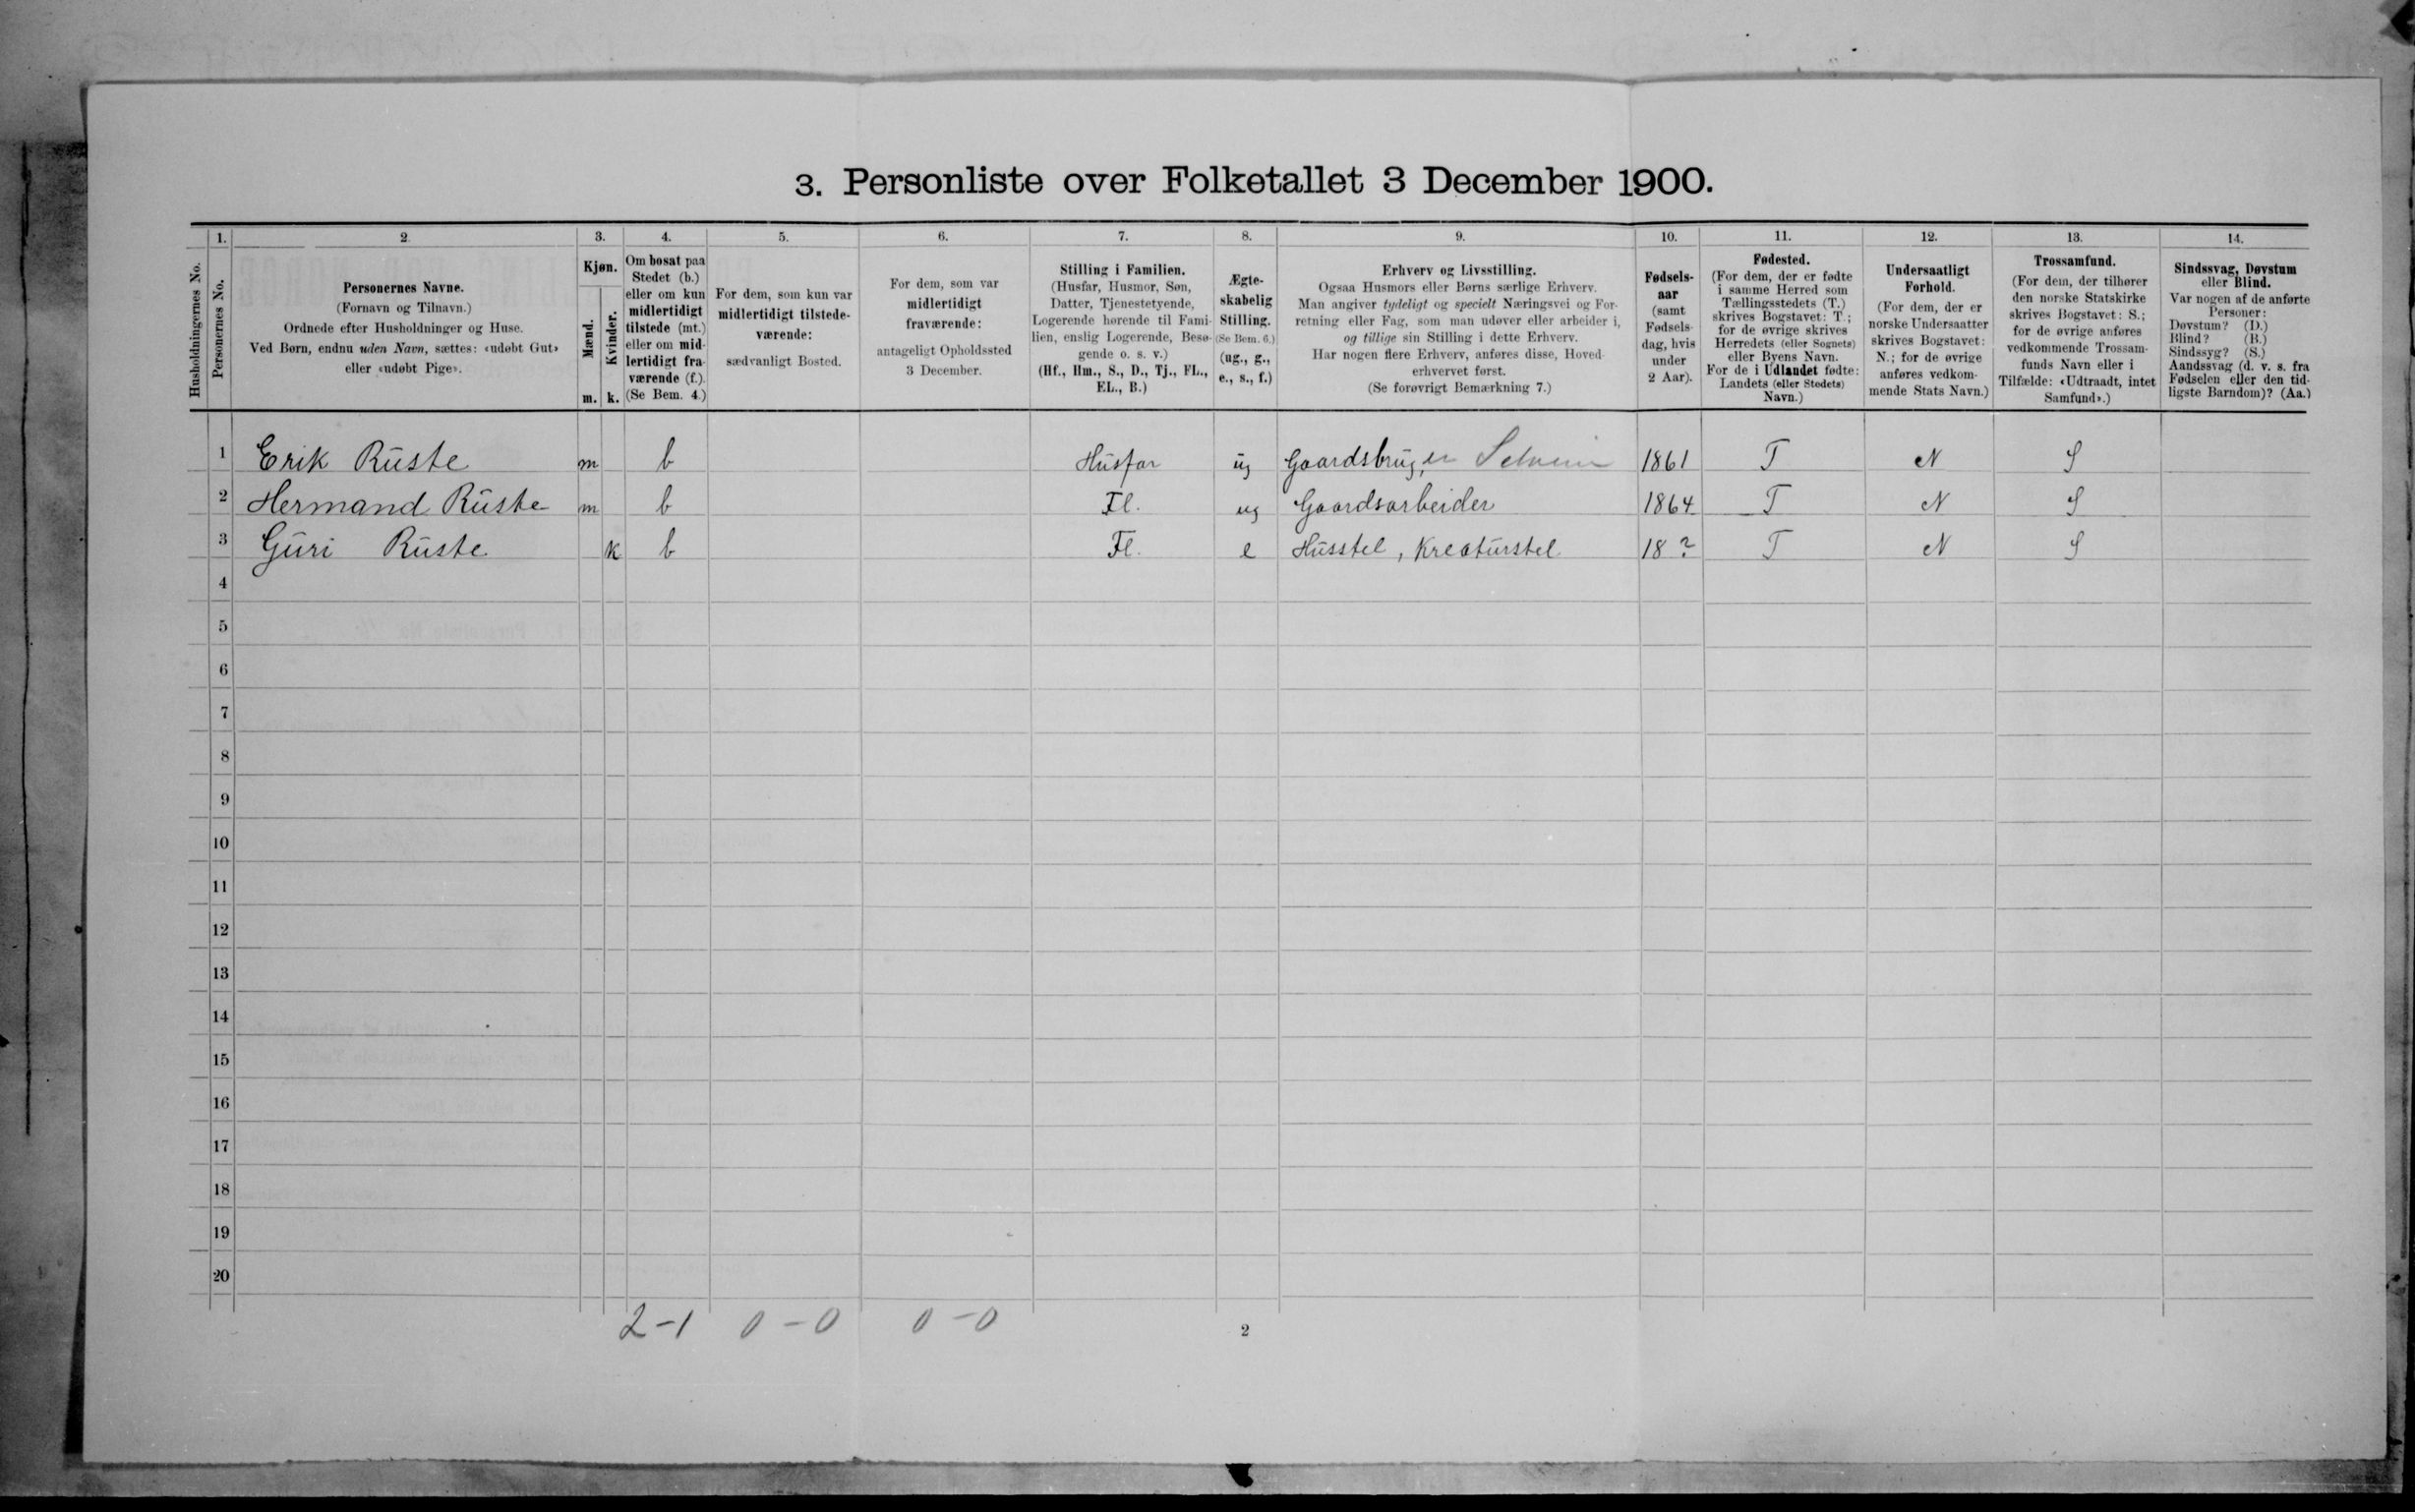 3. Personliste over Folketallet 3 December 1900.
Husholdningernes No.
1.
Personernes No.
2.
Personernes Navne.
(Fornavn og Tilnavn.)
Ordnede efter Husholdninger og Huse.
Ved Børn, endnu uden Navn, sættes: «udøbt Gut»
eller «udøbt Pige».
3.
Kjøn.
Mænd.
Kvinder.
m. k.
4.
Om bosat paa
Stedet (b.)
eller om kun
midlertidigt
tilstede (mt.)
eller om mid-
lertidigt fra-
værende (f.).
(Se Bem. 4.)
5.
For dem, som kun var
midlertidigt tilstede-
værende:
sædvanligt Bosted.
6.
For dem, som var
midlertidigt
fraværende:
antageligt Opholdssted
3 December.
7.
Stilling i Familien.
(Husfar, Husmor, Søn,
Datter, Tjenestetyende,
Logerende hørende til Fami-
lien, enslig Logerende, Besø-
gende o. s. v.)
(Hf., Hm., S., D., Tj., FL.,
EL., B.)
8.
Ægte-
skabelig
Stilling.
(Se Bem. 6.)
(ug., g.,
e., s., f.)
9.
Erhverv og Livsstilling.
Ogsaa Husmors eller Børns særlige Erhverv.
Man angiver tydeligt og specielt Næringsvei og For-
retning eller Fag, som man udøver eller arbeider i,
og tillige sin Stilling i dette Erhverv.
Har nogen flere Erhverv, anføres disse, Hoved-
erhvervet først.
(Se forøvrigt Bemærkning 7.)
10.
Fødsels-
aar
(samt
Fødsels-
dag, hvis
under
2 Aar).
11.
Fødested.
(For dem, der er fødte
i samme Herred som
Tællingsstedets (T.)
skrives Bogstavet: T.;
for de øvrige skrives
Herredets (eller Sognets)
eller Byens Navn.
For de i Udlandet fødte:
Landets (eller Stedets)
Navn.)
12.
Undersaatligt
Forhold.
(For dem, der er
norske Undersaatter
skrives Bogstavet:
N.; for de øvrige
anføres vedkom-
mende Stats Navn.)
13.
Trossamfund.
(For dem, der tilhører
den norske Statskirke
skrives Bogstavet: S.;
for de øvrige anføres
vedkommende Trossam-
funds Navn eller i
Tilfælde: «Udtraadt, intet
Samfund».)
14.
Sindssvag, Døvstum
eller Blind.
Var nogen af de anførte
Personer:
Døvstum? (D.)
Blind? (B.)
Sindssyg? (S.)
Aandssvag (d. v. s. fra
Fødselen eller den tid-
ligste Barndom)? (Aa.)
1 Erik Ruste m b Husfar ug Gaardsbruger Selveier 1861 T N S
2 Hermand Ruste m b Fl. ug Gaardsarbeider 1864 T N S
3 Guri Ruste k b Fl. e Husstel, Kreaturstel 18? T N S
4
5
6
7
8
9
10
11
12
13
14
15
16
17
18
19
20
2-1 0-0 0-0
2